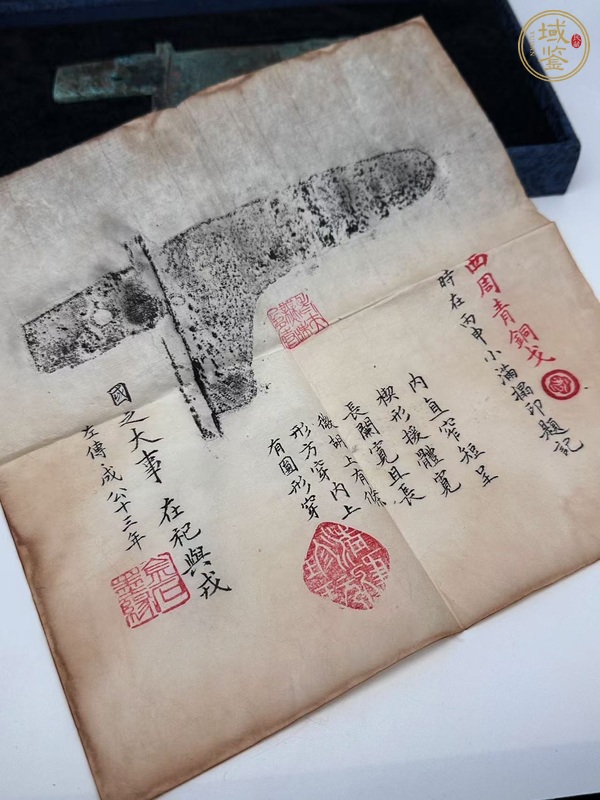 西周青銅戈
時在丙申小滿搨印題記
內直窄短呈
楔形援體寬
長闌寬且長
微胡上有條
形方穿內上
有圓形穿
國之大事 在祀與戎
左傳成公十三年
金石
域鑒